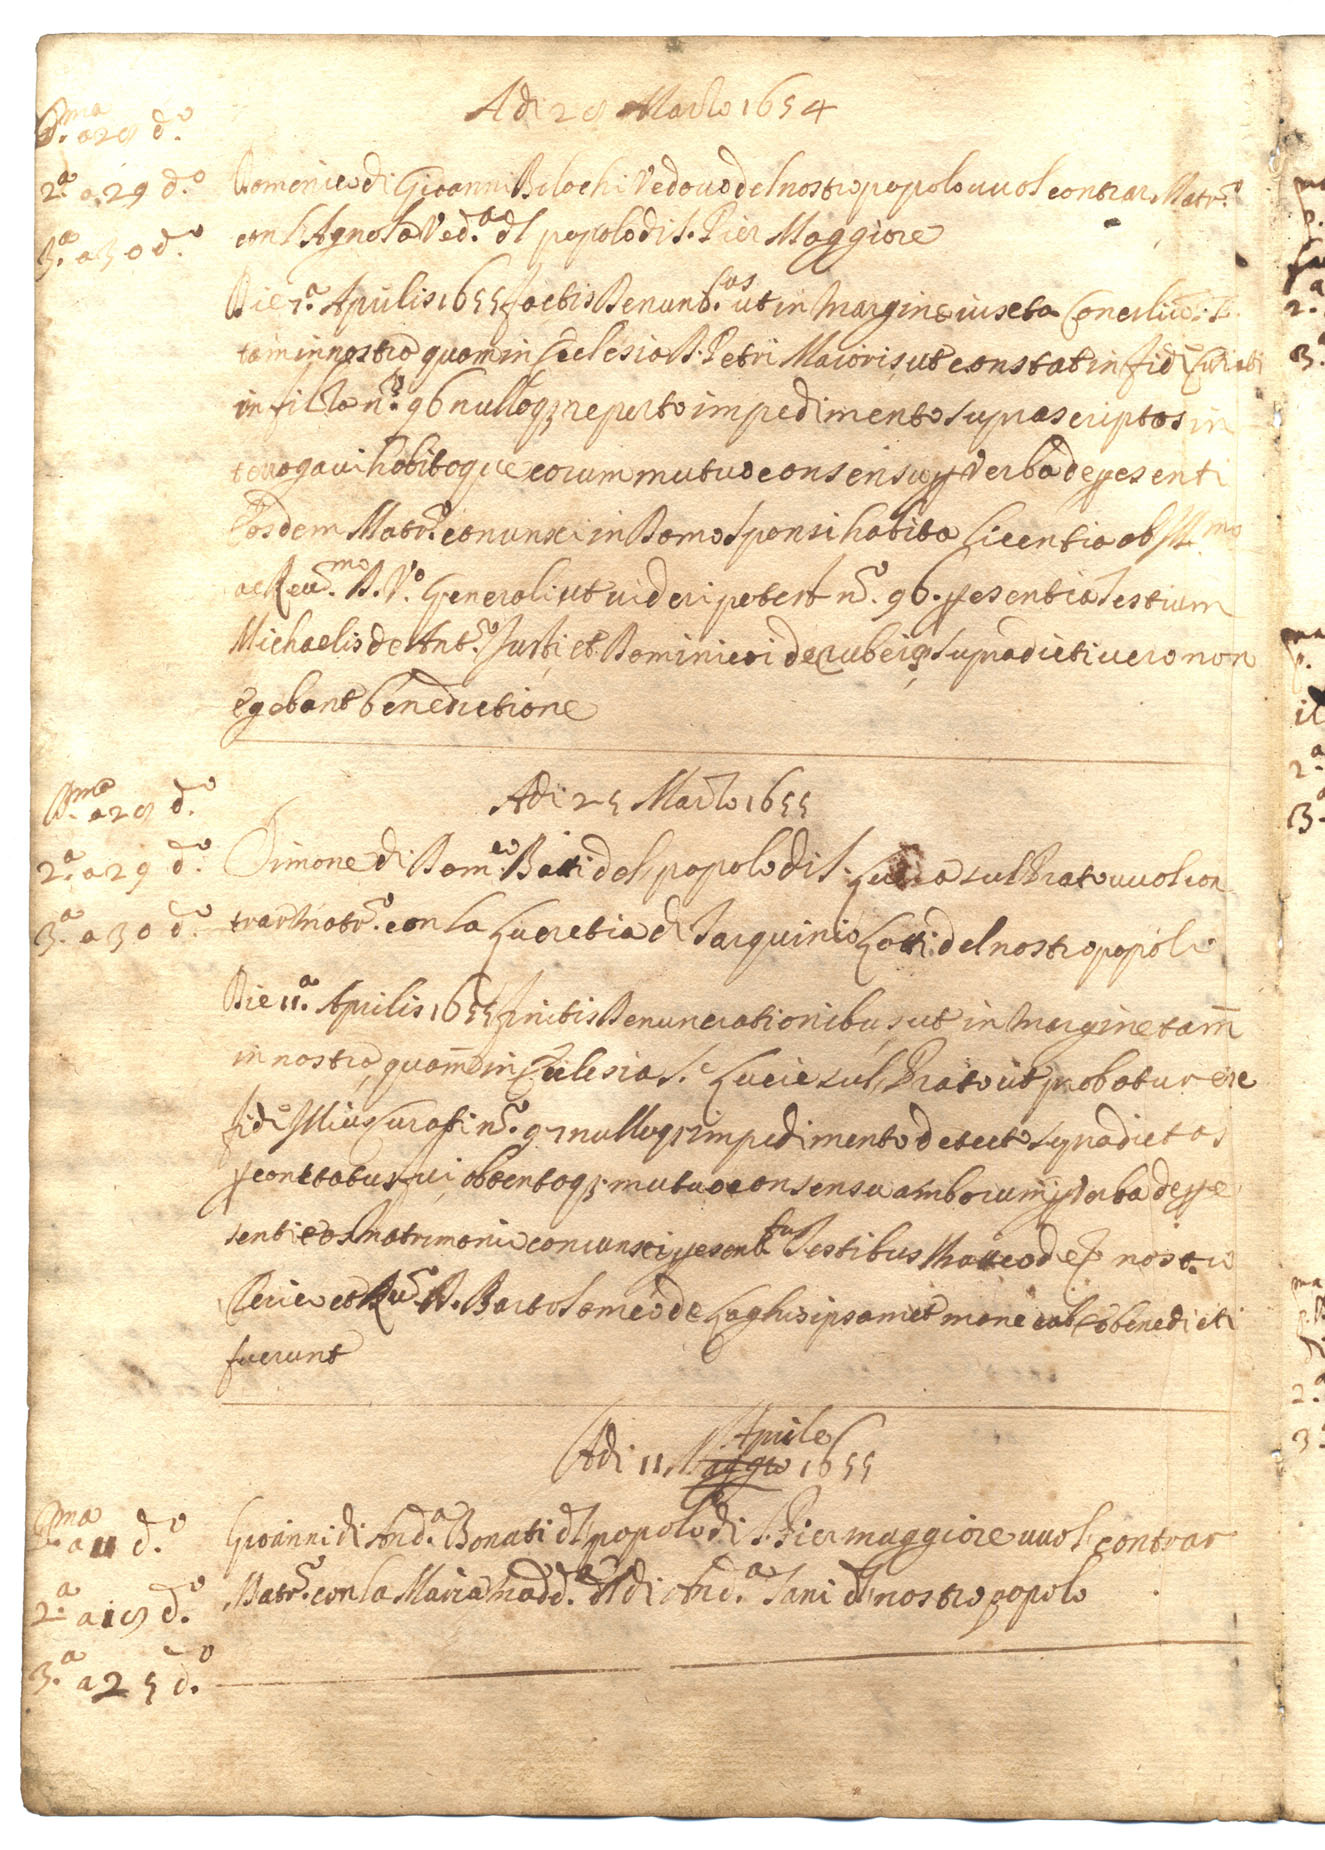 Adi 28 Marzo 1654
p.ma a 28 d.o
2.a a 29 d.o
3.a a 30 d.o
Domenico di Giovanni Bilochi Vedovo del nostro popolo vuol contrar Matr.o
con l'Agnola Ved.a dl popolo di S. Pier Maggiore
Die 7.a Aprilis 1655 factis Denunt.nibus ut in margine iuxta Concilium
tam in nostra quam in Ecclesia D. Petri Maioris, ut constat in fide Curati
in filza n.o 96 nulloq; reperto impedimento suprascriptos in
terrogavi habitoque eorum mutuo consensu p verba de pesenti
Eosdem Matr.o coniunxi in Domo Sponsi habita Licentia ab Ill.mo
ac Reu.mo D. V.o Generali ut videri poterit n.o 96. pesentia Testium
Michaelis de Ant.o Justi et Dominici de Rubeis, supradicti vero non
egebant benedictione
Adi 25 Marzo 1655
p.ma a 28 d.o
2.a a 29 d.o
3.a a 30 d.o
Simone di Dom.co Batti del popolo di S. Lucia sul Prato vuol con
trar Matr.o con la Lucretia di Tarquinio Lotti del nostro popolo
Die 11.a Aprilis 1655 finitis Denunciationibus, ut in margine tam
in nostra, quam in Ecclesia S. Lucie sul Prato ut probatur ex
fide Illius Curati n.o 97 nulloq; impedimento detecto supradictos
pcontatus fui, obtentoq; mutuo consensu amborum p verba de pe
senti eos Matrimonio coniunxi pesent.bus Testibus Matteo de nostro
Clerico et D. Bartolomeo de Laghis ipsamet mane benedicti
fuerunt
Adi 11 Maggio Aprile 1655
p.ma a 11 d.o
2.a a 18 d.o
3.a a 25 d.o
Giovanni di And.a Bonati dl popolo di S. Pier maggiore vuol contrar
Matr.o con la Maria Madd.a di And.a Tani dl nostro popolo